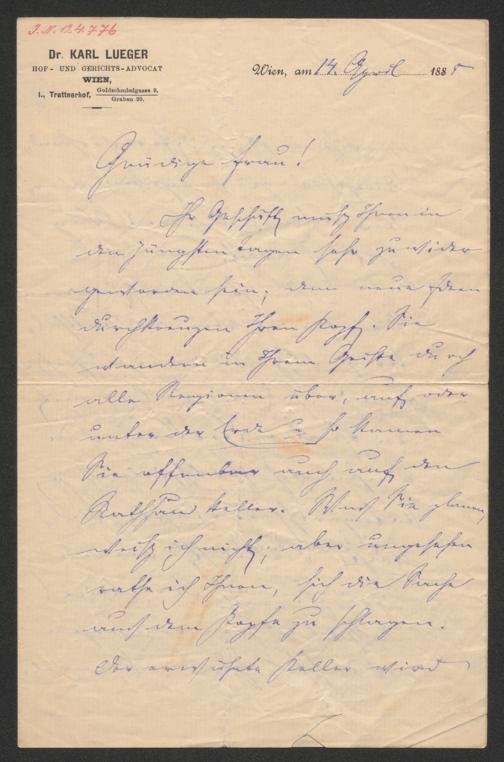 I. N. 124.776
Dr. KARL LUEGER
HOF- UND GERICHTS-ADVOCAT
WIEN,
I., Trattnerhof, Goldschmiedgasse 9.
Graben 29.
Wien, am 14. April 1885
Gnädige Frau!
Ihr Geschäft muß Ihnen in
den jüngsten Tagen sehr zuwider
geworden sein; denn neue Ideen
durchkreuzen Ihren Kopf. Sie
wandern in Ihrem Geiste durch
alle Regionen über, auf oder
unter der Erde u. so kamen
Sie offenbar auch auf den
Rathhauskeller. Was Sie planen,
weiß ich nicht; aber ungesehen
rathe ich Ihnen, sich die Sache
aus dem Kopfe zu schlagen.
Der erwähnte Keller wird